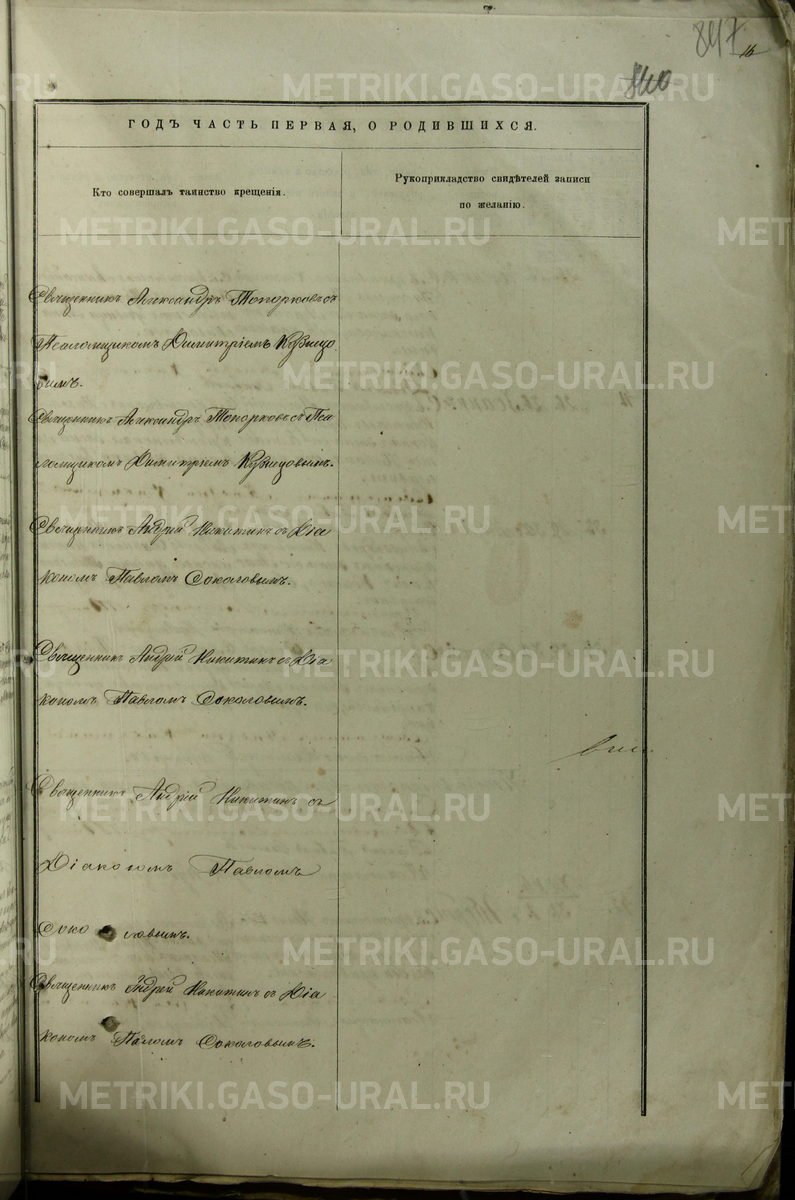 847
16
840
ГОДЪ ЧАСТЬ ПЕРВАЯ, О РОДИВШИХСЯ.
Кто совершалъ таинство крещенія.
Рукоприкладство свидѣтелей записи
по желанію.
Священникъ Александръ Топорковъ съ
Псаломщикомъ Димитріемъ Кузнецо
вымъ.
Священникъ Александръ Топорковъ съ Пса
ломщикомъ Димитріемъ Кузнецовымъ.
Священникъ Андрей Никитинъ съ Діа
кономъ Павломъ Соколовымъ.
Священникъ Андрей Никитинъ съ Діа
кономъ Павломъ Соколовымъ.
Священникъ Андрей Никитинъ съ
Діакономъ Павломъ
Соколовымъ.
Священникъ Андрей Никитинъ съ Діа
кономъ Павломъ Соколовымъ.
METRIKI.GASO-URAL.RU